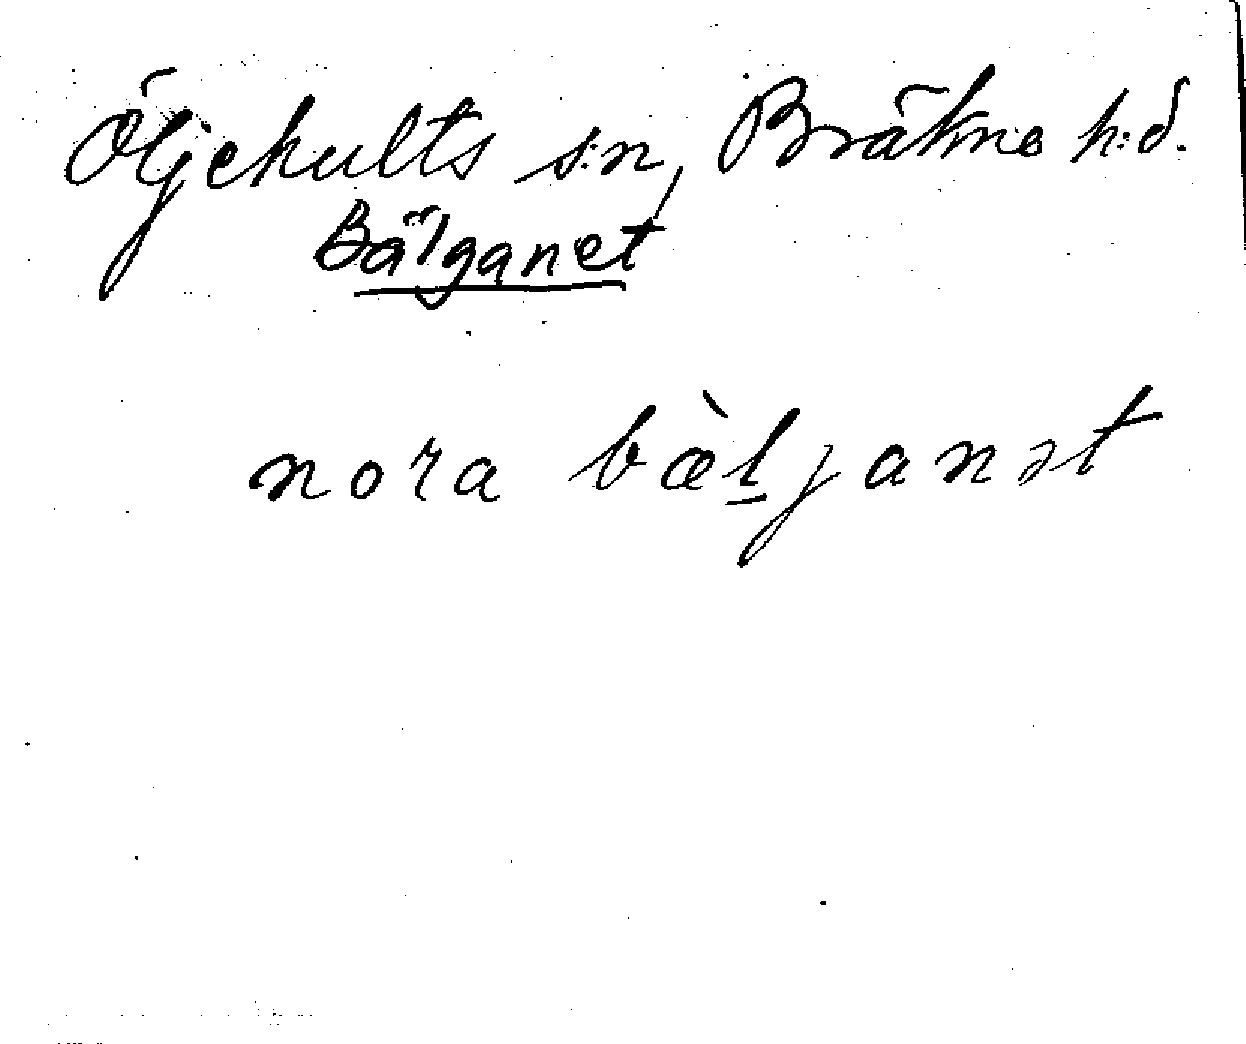 Öljehults s:n, Bräkne h:d.
Bälganet
nora bæ̀l̠janət